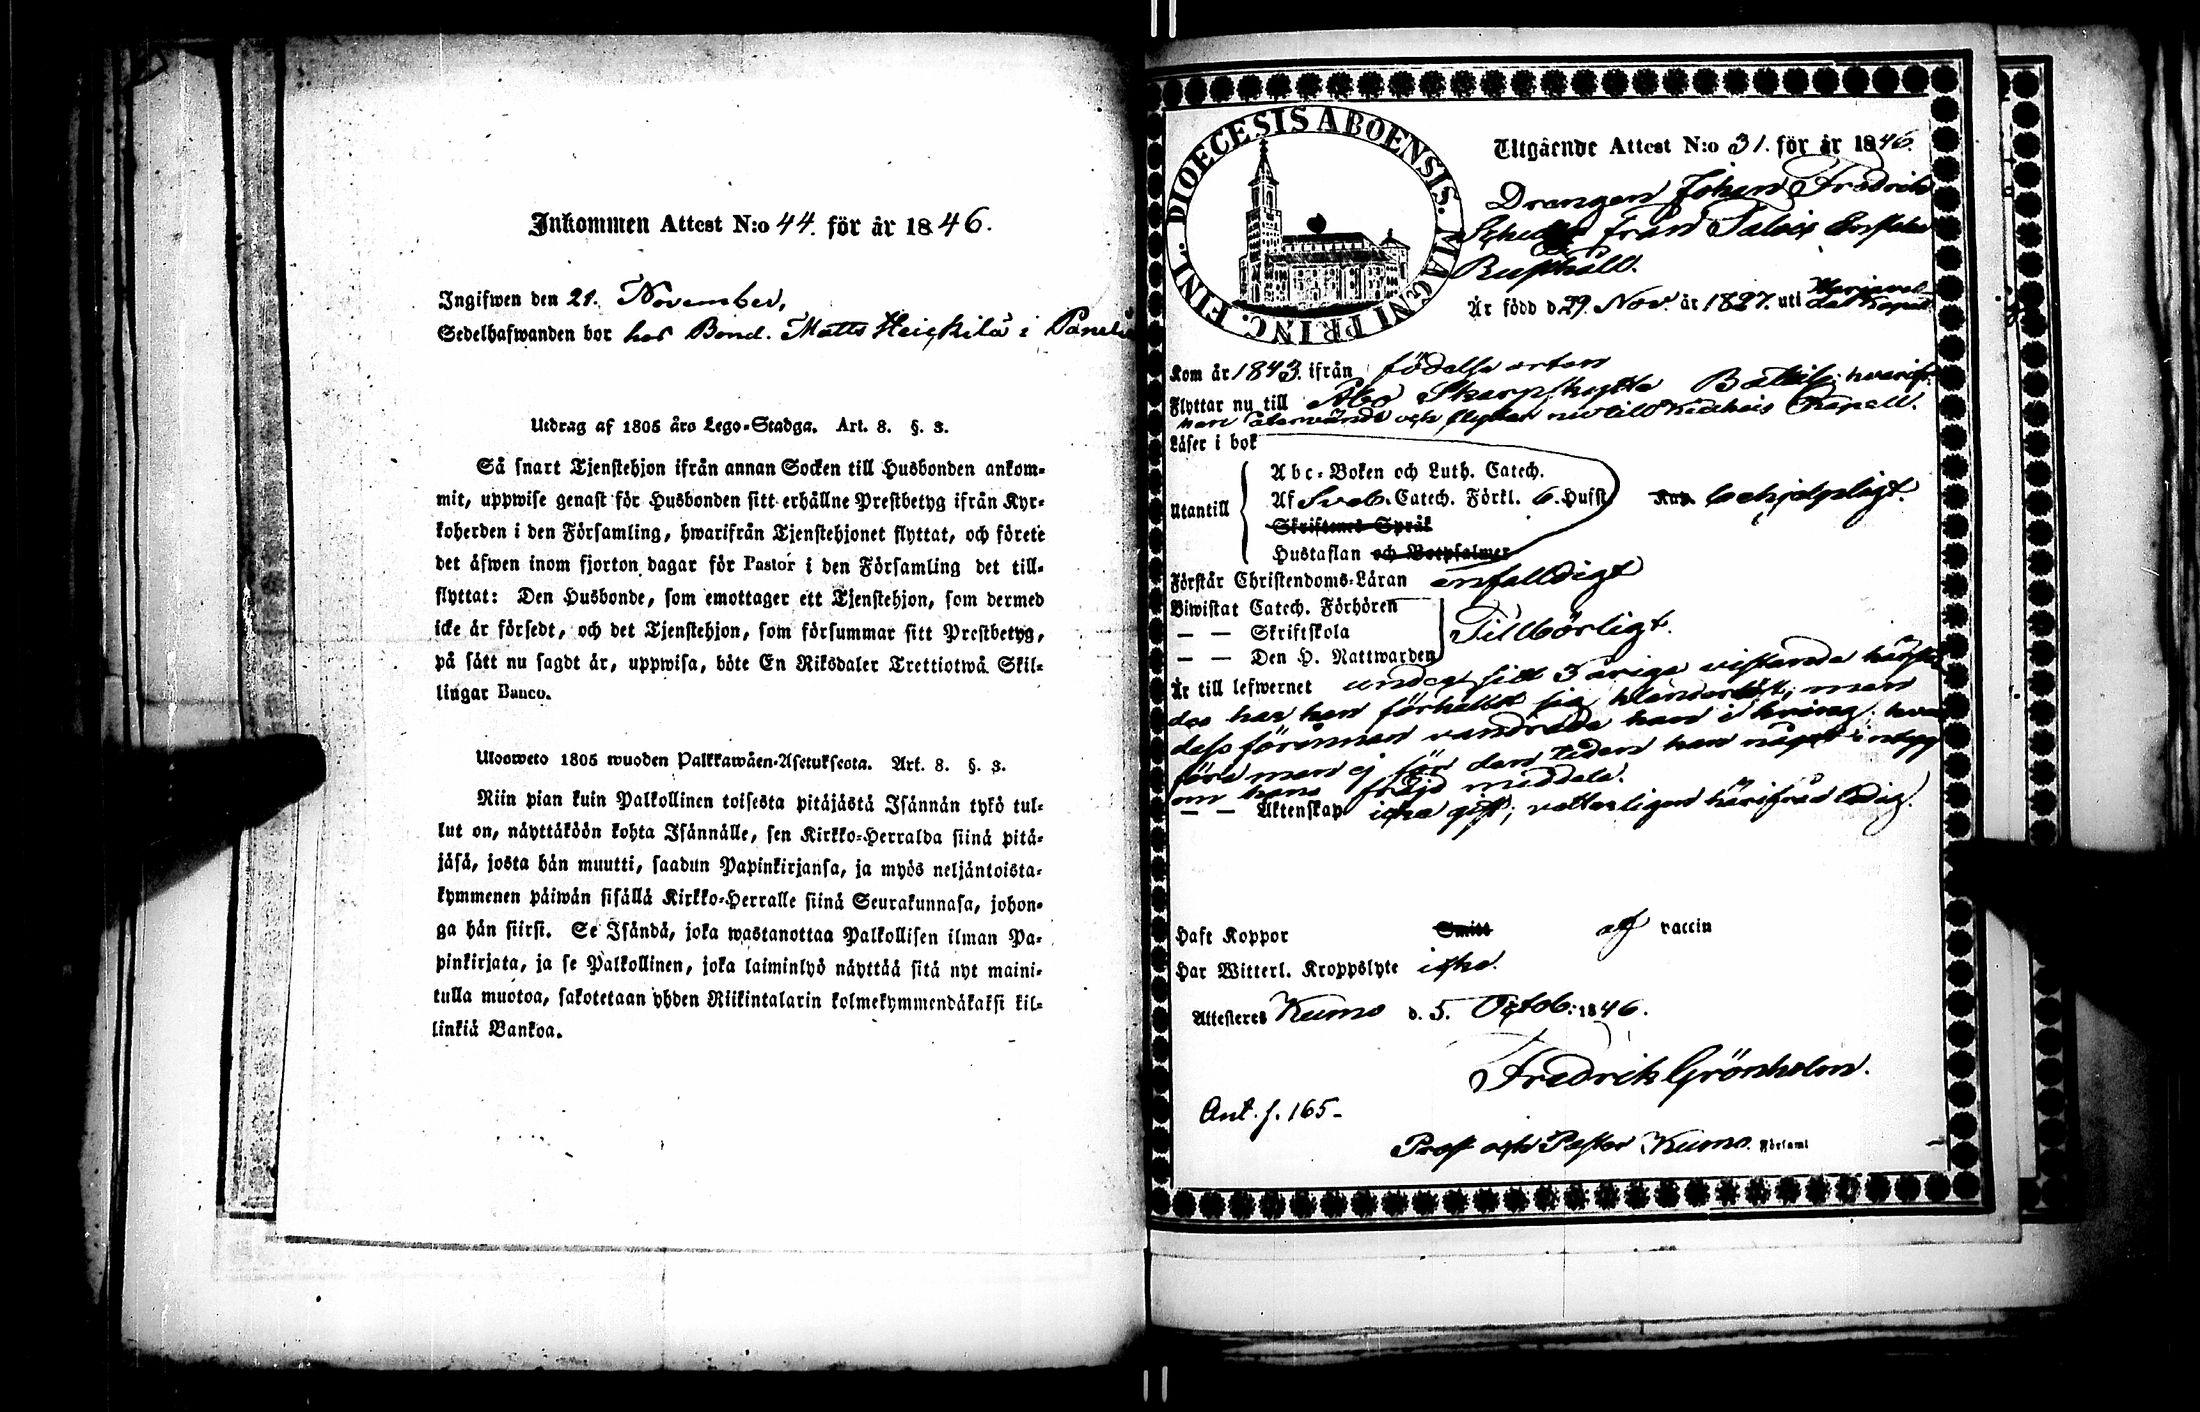 Inkommen Attest N:o 44. för år 1846.
Ingifwen den 21. November,
Sedelhafwanden bor hos Bond. Matts Heickilä i Panelia
Utdrag af 1805 års Lego-Stadga. Art. 8. §. 3.
Så snart Tjenstehjon ifrån annan Socken till Husbonden ankom-
mit, uppwise genast för Husbonden sitt erhållne Prestbetyg ifrån Kyr-
koherden i den Församling, hwarifrån Tjenstehjonet flyttat, och förete
det äfwen inom fjorton dagar för Pastor i den Församling det till-
flyttat: Den Husbonde, som emottager ett Tjenstehjon, som dermed
icke är försedt, och det Tjenstehjon, som försummar sitt Prestbetyg,
på sätt nu sagdt är, uppwisa, böte En Riksdaler Trettiotwå Skil-
lingar Banco.
Ulosweto 1805 wuoden Palkkawäen-Asetuksesta. Art. 8. §. 3.
Niin pian kuin Palkollinen toisesta pitäjästä Isännän tykö tul-
lut on, näyttäköön kohta Isännälle, sen Kirkko-Herralda siinä pitä-
jäsä, josta hän muutti, saadun Papinkirjansa, ja myös neljäntoista-
kymmenen päiwän sisällä Kirkko-Herralle siinä Seurakunnasa, johon-
ga hän siirsi. Se Isändä, joka wastanottaa Palkollisen ilman Pa-
pinkirjata, ja se Palkollinen, joka laiminlyö näyttää sitä nyt maini-
tulla muotoa, sakotetaan yhden Riikintalarin kolmekymmendäkaksi kil-
linkiä Bankoa.
DIOECESIS ABOENSIS. MAGNI PRINC. FINL.
Utgående Attest N:o 31. för år 1846.
Drängen Johan Fredrik
från
Rusthåll.
Är född d. 29. Nov. år 1827. uti
Kapell
Kom år 1843. ifrån födelse orten
Flyttar nu till Åbo Skarpskytte Bataill; hvarifr.
han återvände och flyttar nu till Kiukais Kapell.
Läser i bok
Utantill
Abc-Boken och Luth. Catech.
Af Sveb. Catech. Förkl. 6. Hufst. behjelpligt.
Skriftenes Språk
Hustaflan och Botpsalmer
Förstår Christendoms-Läran enfalldigt
Biwistat Catech. Förhören
— — Skriftskola Tillbörligt.
— — Den H. Nattwarden
Är till lefwernet under sitt 3 åriga vistande härstä
des har han förhållit sig klanderlöst; men
dess förinnan vandrade han i kring, hvar
före man ej för den tiden kan något intyg
om hans frejd meddela.
— — Äktenskap icke gift; vetterligen härifrån ledig.
Haft Koppor Smitt af vaccin
Har Witterl. Kroppslyte icke.
Attesteres Kumo d. 5. Octob: 1846.
Fredrik Grönholm.
Ant. f. 165-
Prost och Pastor i Kumo. Församl